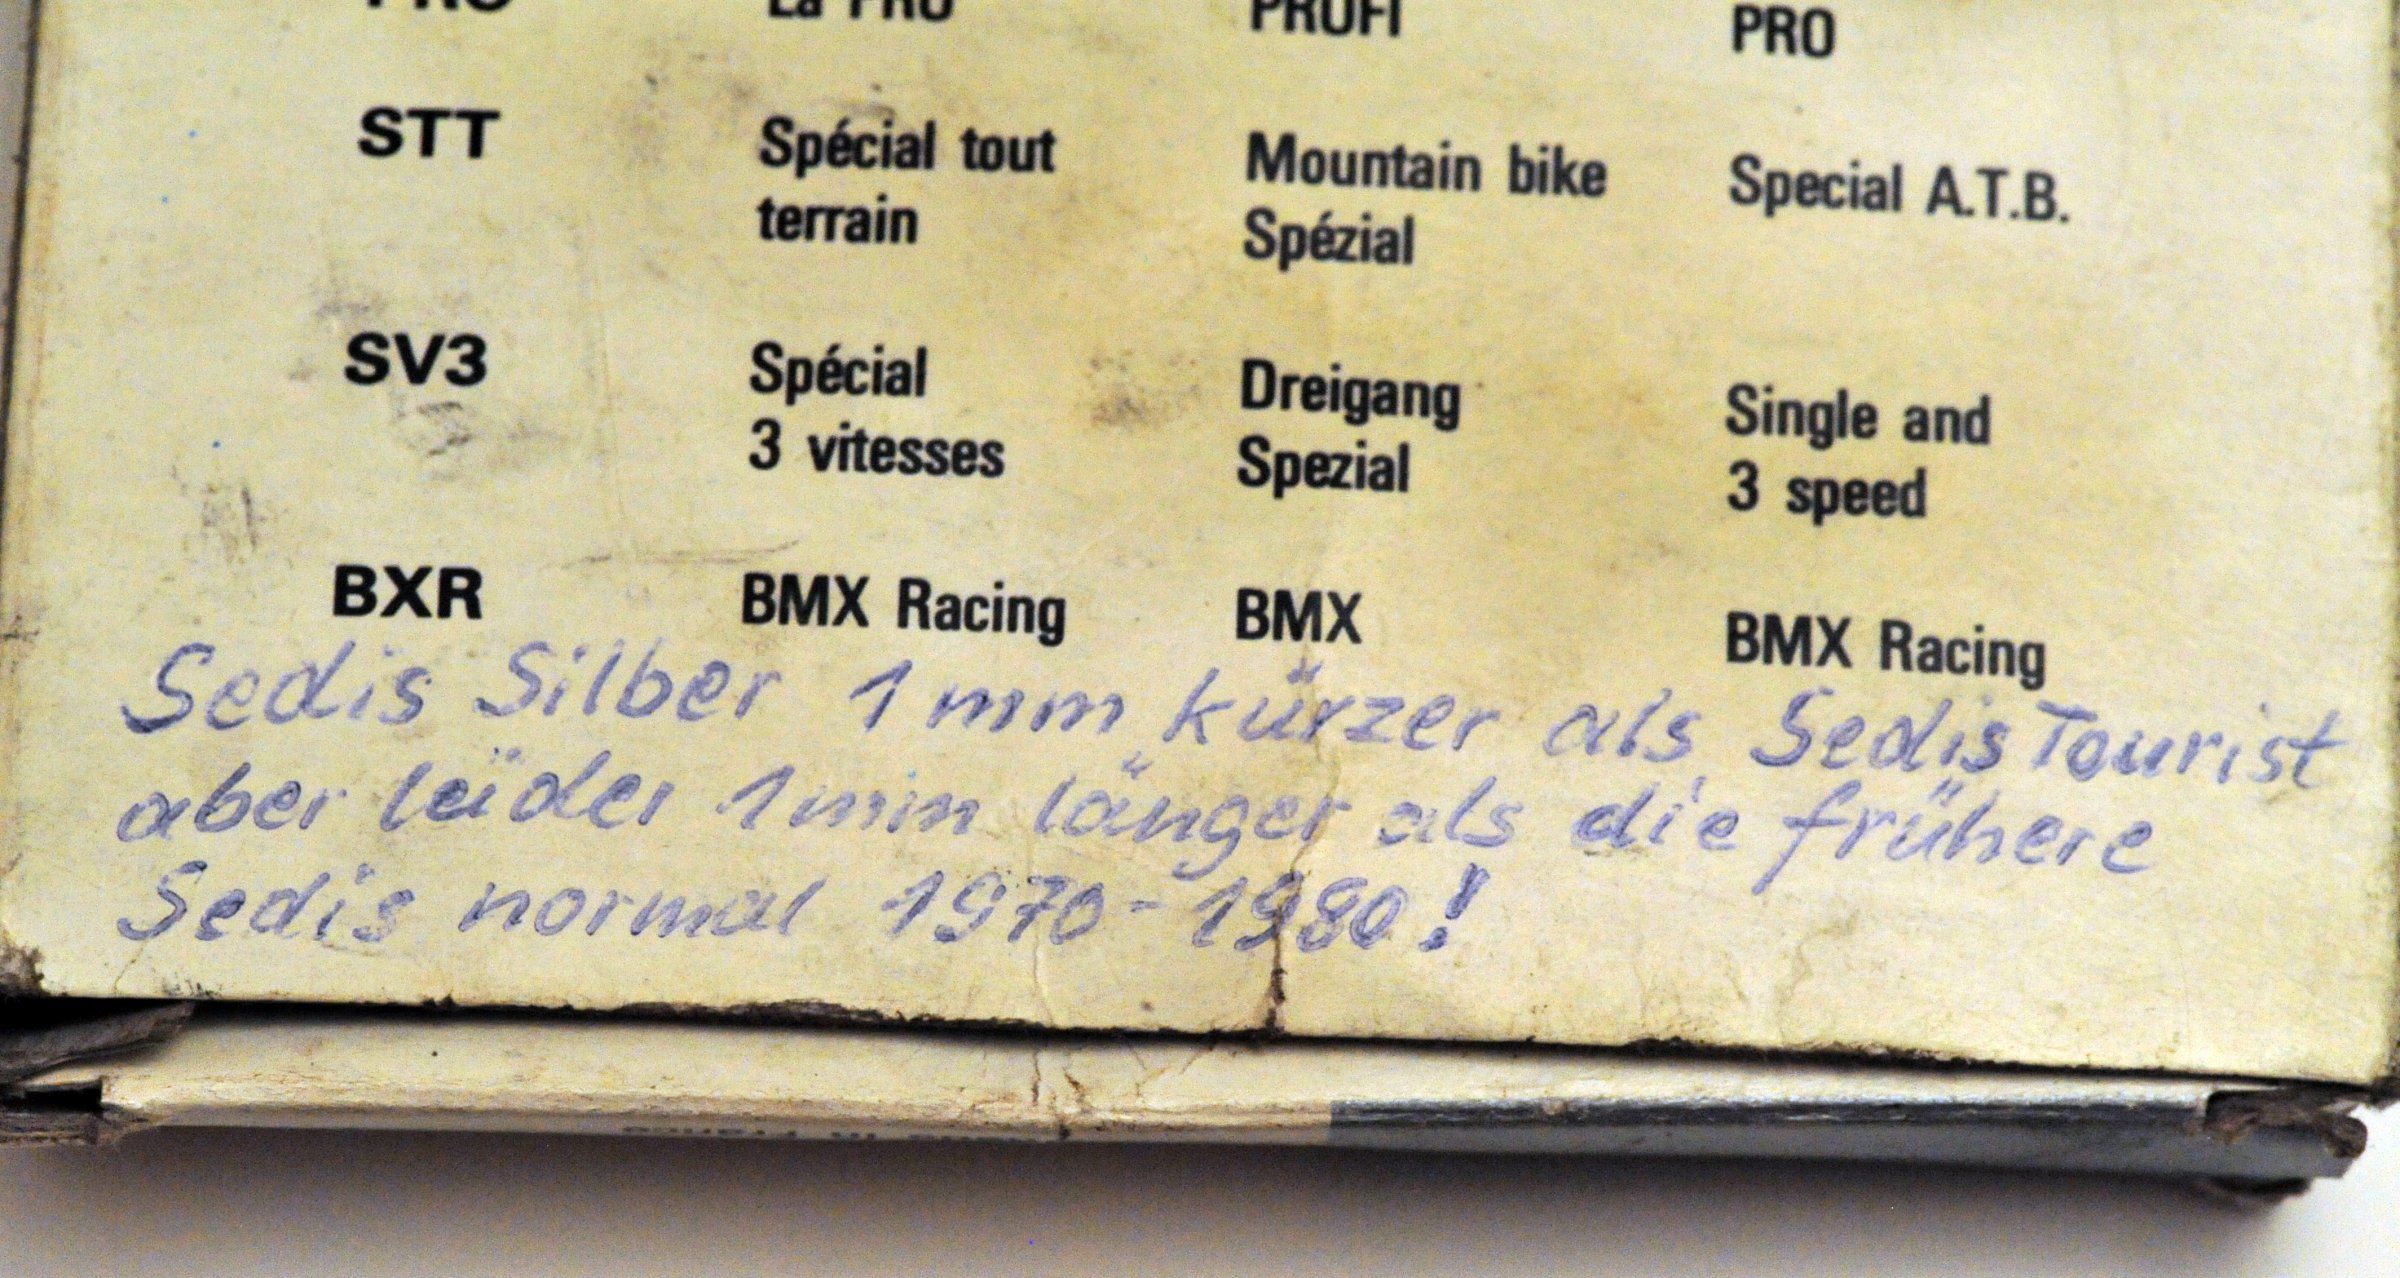 PRO La PRO PROFI PRO
STT Spécial tout Mountain bike Special A.T.B.
terrain Spézial
SV3 Spécial Dreigang Single and
3 vitesses Spezial 3 speed
BXR BMX Racing BMX BMX Racing
Sedis Silber 1mm kürzer als Sedis Tourist
aber leider 1mm länger als die frühere
Sedis normal 1970-1980!